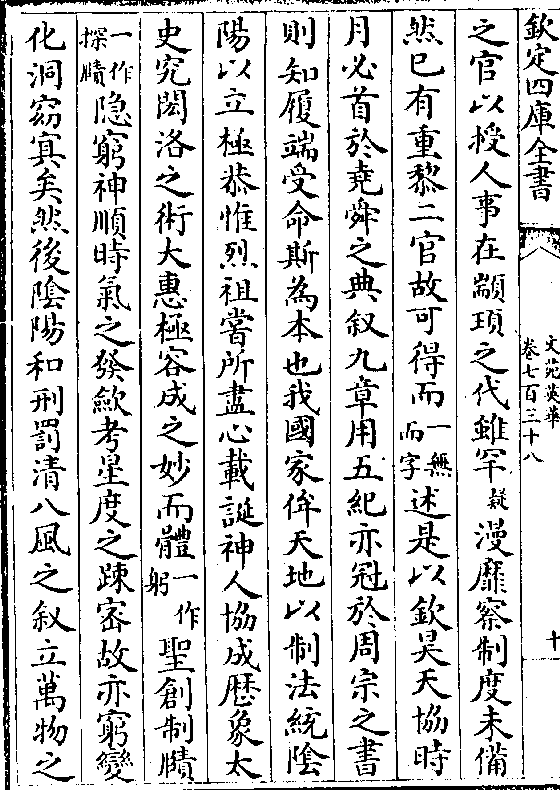 欽定四庫全書
文苑英華
卷七百三十八
十
之官以授人事在顓頊之代雖罕疑漫靡察制度未備
然已有重黎二官故可得而一無而字述是以欽昊天協時
月必首於堯舜之典叙九章用五紀亦冠於周宗之書
則知履端受命斯為本也我國家侔天地以制法統陰
陽以立極恭惟烈祖嘗所盡心載誕神人協成歴象太
史究閎洛之術大惠極容成之妙而體一作躬聖創制賾
一作探賾隐窮神順時氣之發歛考星度之踈宻故亦窮變
化洞窈冥矣然後陰陽和刑罰清八風之叙立萬物之